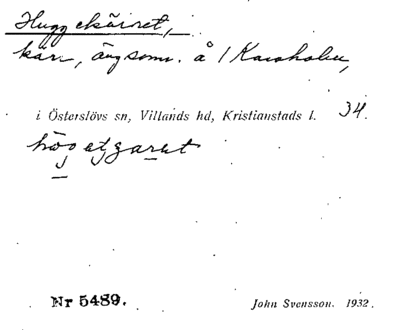 Huggekärret,
kärr, ängsomr. å 1 Karsholm,
34.
i Österslövs sn, Villands hd, Kristianstads l.
Nr 5489.
John Svensson. 1932.